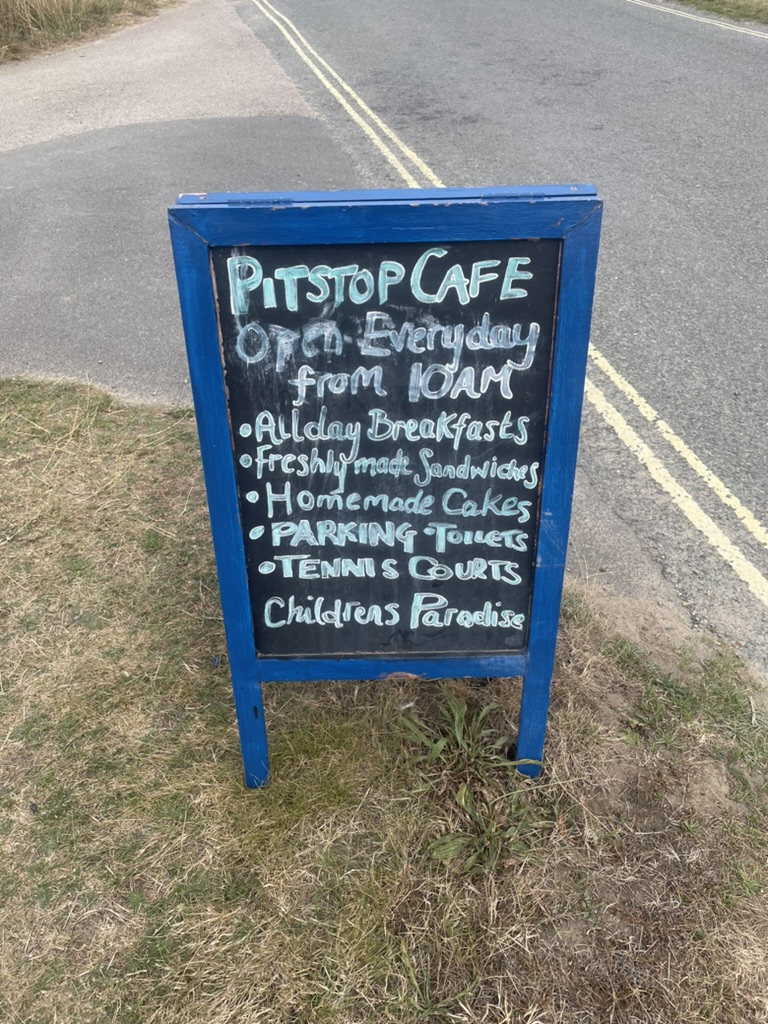 PITSTOP CAFE
Open Everyday
from 10AM
• Allday Breakfasts
• Freshly made Sandwiches
• Homemade Cakes
• PARKING • TOILETS
• TENNIS COURTS
Childrens Paradise